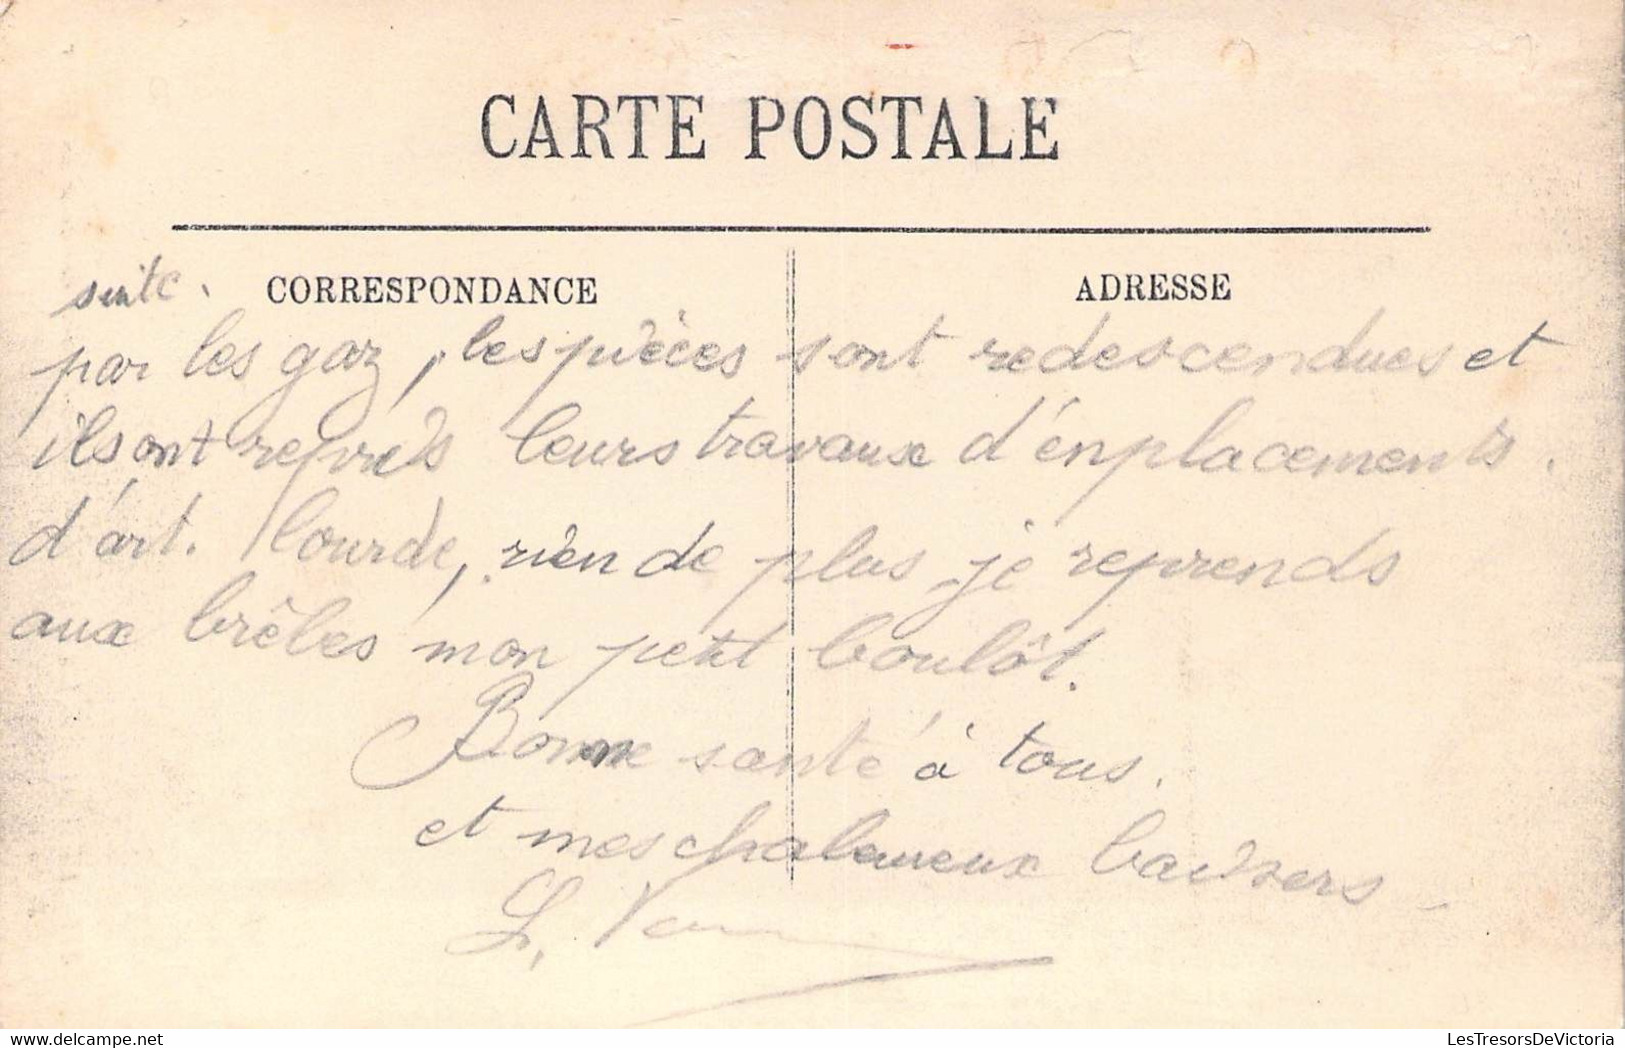 CARTE POSTALE
suite.
CORRESPONDANCE
ADRESSE
par les gaz, les pièces sont redescendues et
ils ont repris leurs travaux d'énplacements.
d'art. lourde, rien de plus, je reprends
aux brêles mon petit boulôt.
Bonne santé à tous.
et mes chaleureux baisers -
LesTresorsDeVictoria